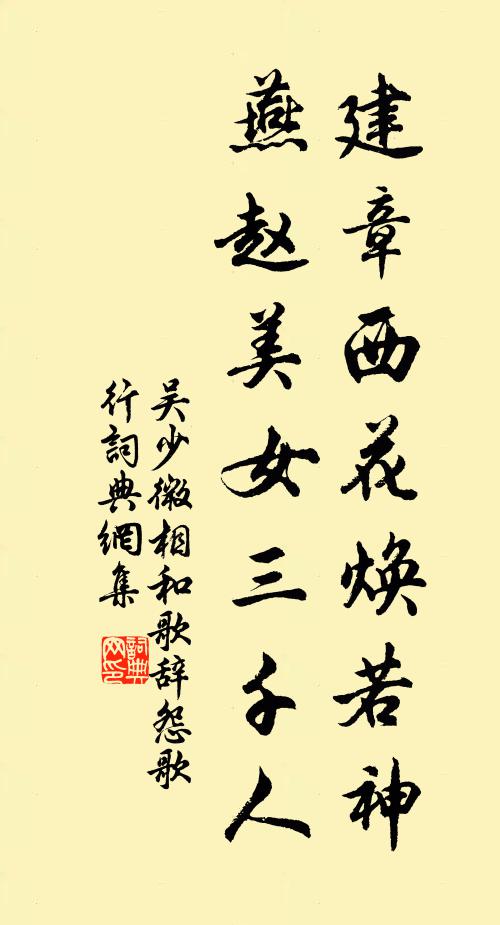 建章西花焕若神
燕赵美女三千人
吴少微相和歌辞怨歌
行詞典網集
詞典
网印